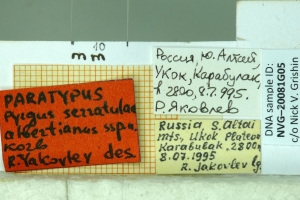 10
mm
PARATYPUS
Pyrgus serratulae
albertianus ssp.n.
K026
R.Yakovlev des.
Россия, ю. Алтай,
Укок, Карабулак,
h 2800, 8.7.1995.
Р. Яковлев
Russia, S. Altai
mts, Ukok Plateau
Karabulak, 2800m
8.07.1995
R. Jakovlev lg
DNA sample ID:
NVG-20081G05
c/o Nick V. Grishin